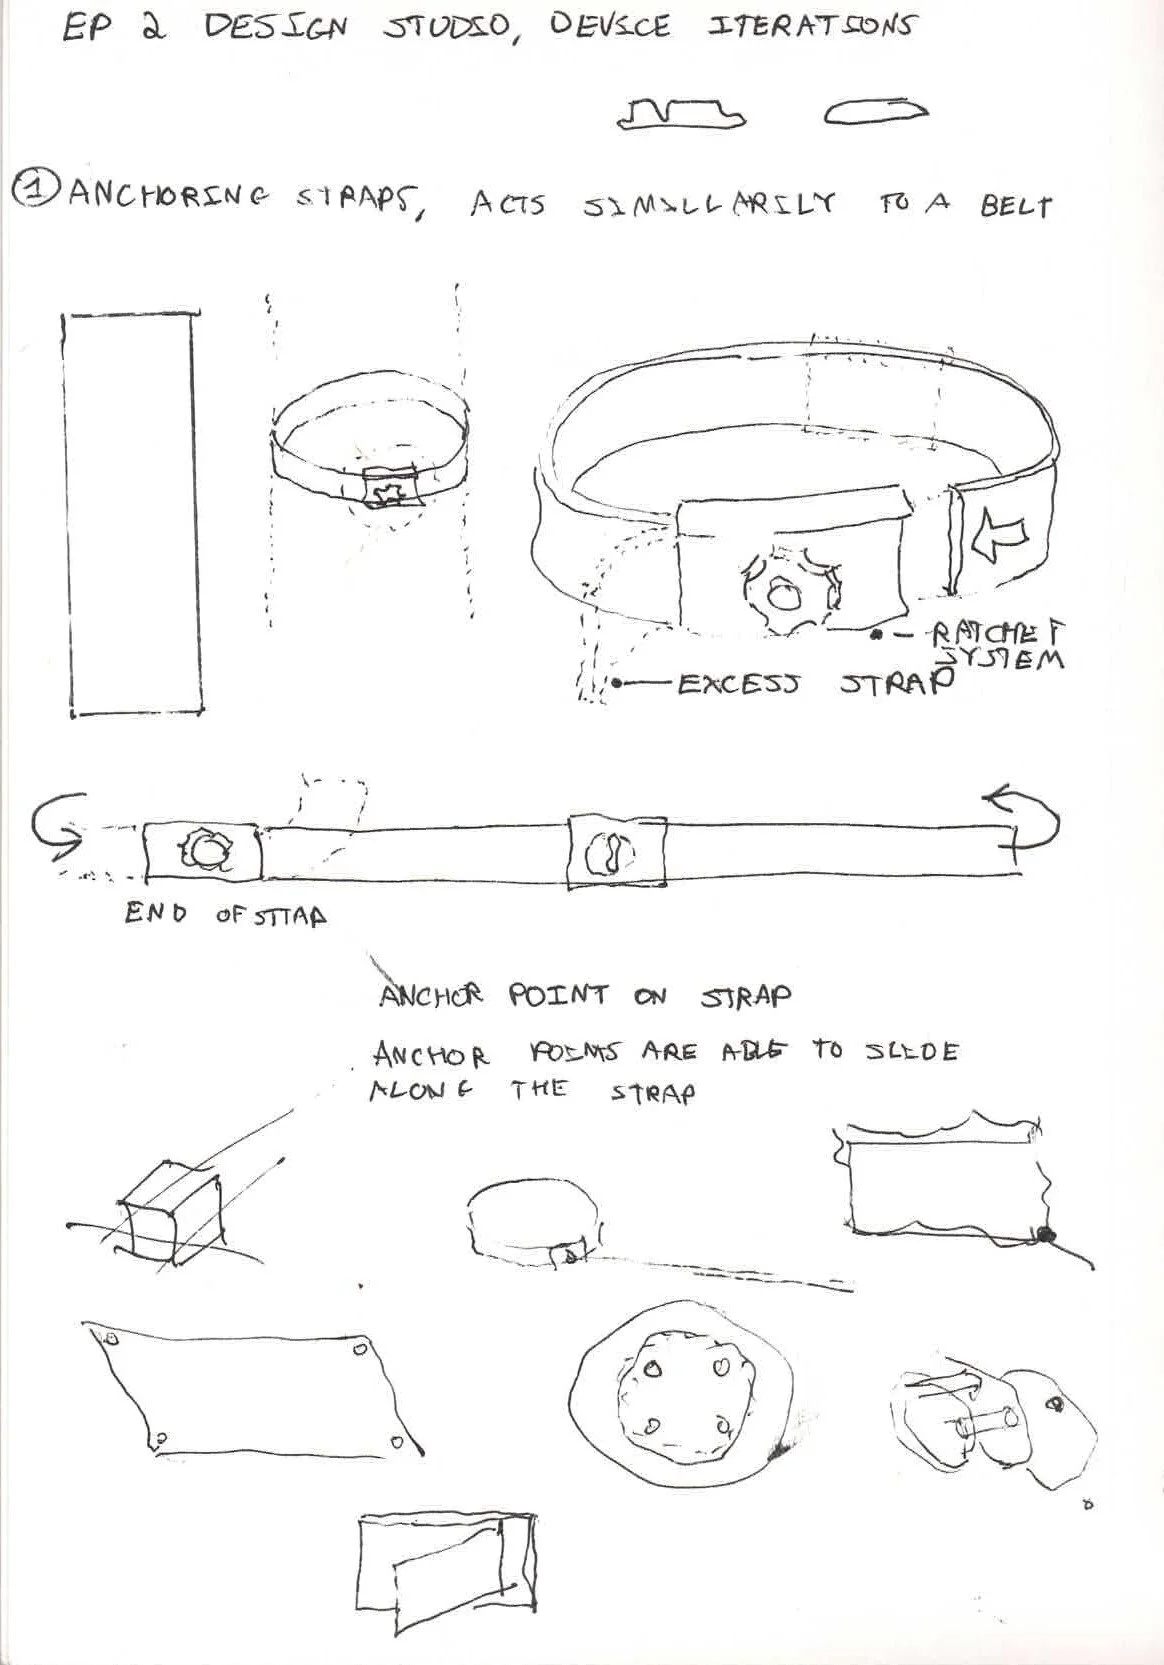 EP 2 DESIGN STUDIO, DEVICE ITERATIONS
① ANCHORING STRAPS, ACTS SIMILLARILY TO A BELT
RATCHET
SYSTEM
EXCESS STRAP
END OF STTAP
ANCHOR POINT ON STRAP
ANCHOR POINTS ARE ABLE TO SLIDE
ALONG THE STRAP